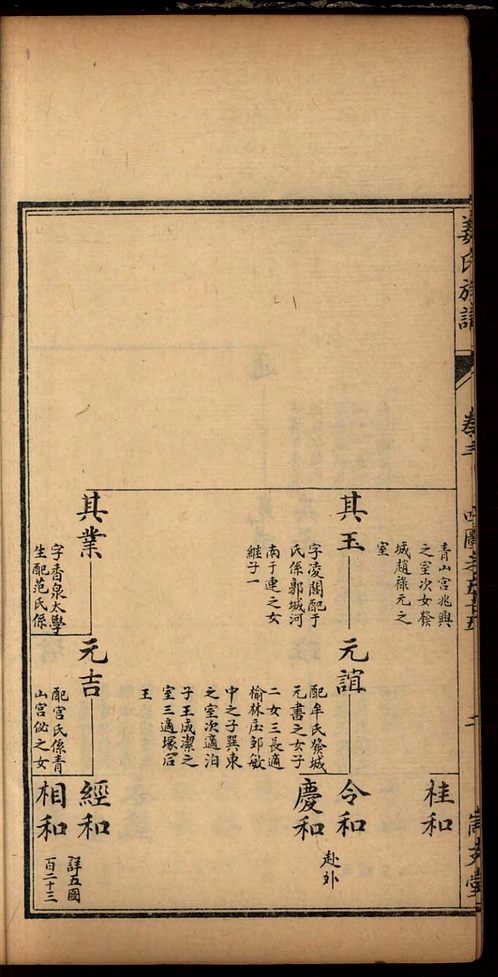 姜氏族譜
卷三
青山宮兆興
之室次女發
城趙祿元之
室
桂和
其玉
字凌閣配于
氏係郭城河
南于連之女
繼子一
元誼
配牟氏發城
元書之女子
二女三長適
榆林庄邹敏
中之子巽東
之室次適泊
子王成潔之
室三適塚后
王
令和
赴外
慶和
其業
字香泉太學
生配范氏係
元吉
配宮氏係青
山宮佖之女
經和
相和
詳五國
百二十三